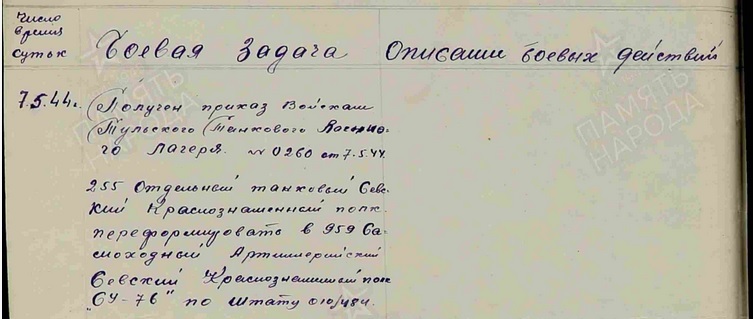 Число
время
суток
Боевая Задача
Описание боевых действий
7.5.44г.
Получен приказ Войскам
Тульского Танкового Военно-
го Лагеря. № 0260 от 7.5.44
255 Отдельный танковый Севс-
кий Краснознаменный полк
переформировать в 959 Са-
моходный Артиллерийский
Севский Краснознаменный полк
"СУ-76" по штату 010/484.
ПАМЯТЬ
НАРОДА
ПАМЯТЬ
НАРОДА